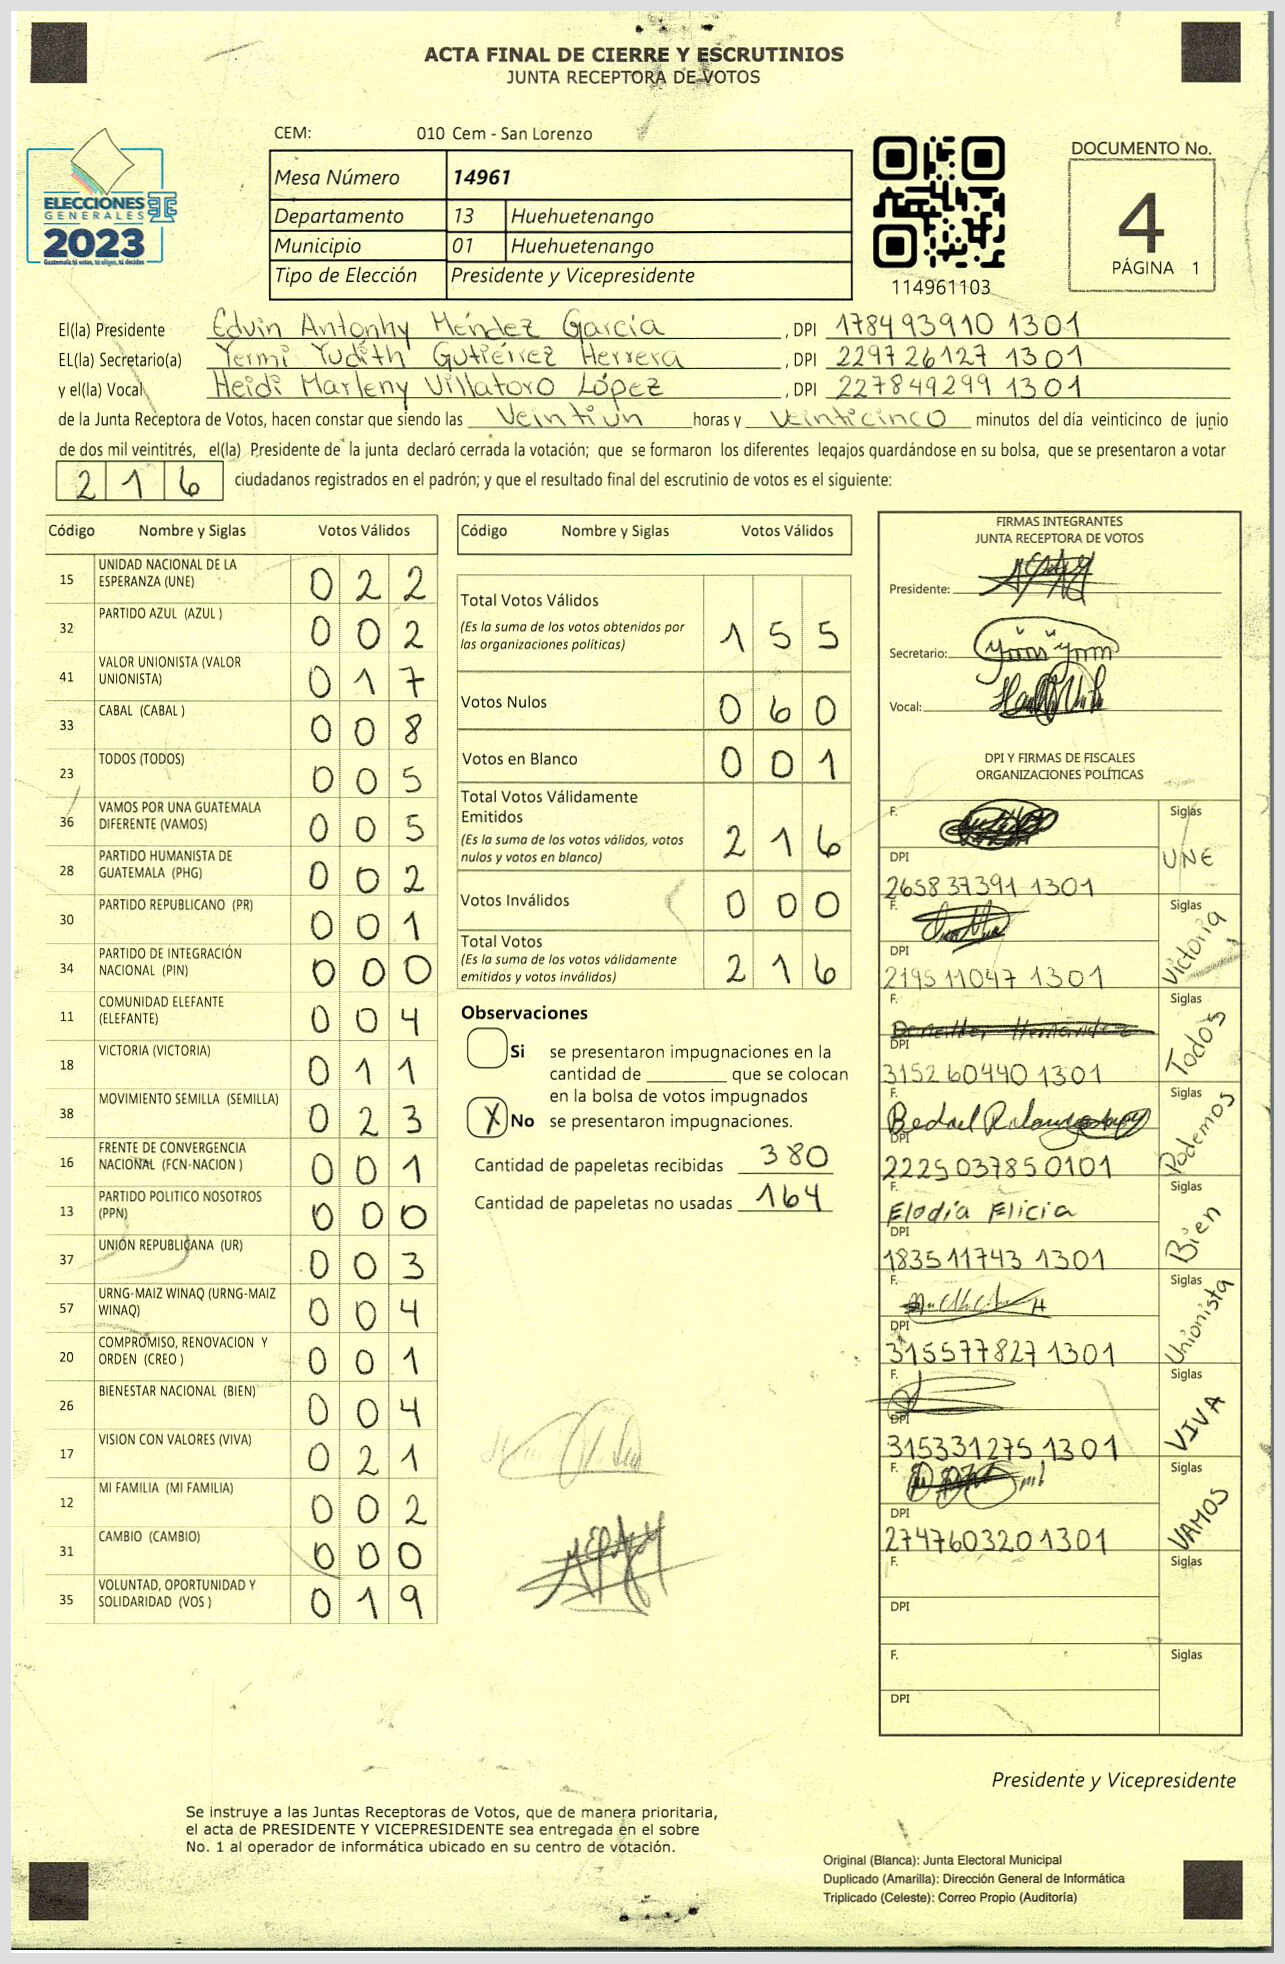 ACTA FINAL DE CIERRE Y ESCRUTINIOS
JUNTA RECEPTORA DE VOTOS
CEM: 010 Cem - San Lorenzo
ELECCIONES
GENERALES
2023
Guatemala tú votas, tú eliges, tú decides
Mesa Número 14961
Departamento 13 Huehuetenango
Municipio 01 Huehuetenango
Tipo de Elección Presidente y Vicepresidente
114961103
DOCUMENTO No.
4
PÁGINA 1
El(la) Presidente Edvin Antonhy Méndez García, DPI 178493910 1301
EL(la) Secretario(a) Yermi Yudith Gutiérrez Herrera, DPI 229726127 1301
y el(la) Vocal Heidi Marleny Villatoro López, DPI 227849299 1301
de la Junta Receptora de Votos, hacen constar que siendo las Veintiún horas y Veinticinco minutos del día veinticinco de junio
de dos mil veintitrés, el(la) Presidente de la junta declaró cerrada la votación; que se formaron los diferentes legajos guardándose en su bolsa, que se presentaron a votar
216 ciudadanos registrados en el padrón; y que el resultado final del escrutinio de votos es el siguiente:
Código Nombre y Siglas Votos Válidos
15 UNIDAD NACIONAL DE LA ESPERANZA (UNE) 022
32 PARTIDO AZUL (AZUL ) 002
41 VALOR UNIONISTA (VALOR UNIONISTA) 017
33 CABAL (CABAL ) 008
23 TODOS (TODOS) 005
36 VAMOS POR UNA GUATEMALA DIFERENTE (VAMOS) 005
28 PARTIDO HUMANISTA DE GUATEMALA (PHG) 002
30 PARTIDO REPUBLICANO (PR) 001
34 PARTIDO DE INTEGRACIÓN NACIONAL (PIN) 000
11 COMUNIDAD ELEFANTE (ELEFANTE) 004
18 VICTORIA (VICTORIA) 011
38 MOVIMIENTO SEMILLA (SEMILLA) 023
16 FRENTE DE CONVERGENCIA NACIONAL (FCN-NACION ) 001
13 PARTIDO POLITICO NOSOTROS (PPN) 000
37 UNIÓN REPUBLICANA (UR) 003
57 URNG-MAIZ WINAQ (URNG-MAIZ WINAQ) 004
20 COMPROMISO, RENOVACION Y ORDEN (CREO ) 001
26 BIENESTAR NACIONAL (BIEN) 004
17 VISION CON VALORES (VIVA) 021
12 MI FAMILIA (MI FAMILIA) 002
31 CAMBIO (CAMBIO) 000
35 VOLUNTAD, OPORTUNIDAD Y SOLIDARIDAD (VOS ) 019
Código Nombre y Siglas Votos Válidos
Total Votos Válidos
(Es la suma de los votos obtenidos por
las organizaciones políticas) 155
Votos Nulos 060
Votos en Blanco 001
Total Votos Válidamente
Emitidos
(Es la suma de los votos válidos, votos
nulos y votos en blanco) 216
Votos Inválidos 000
Total Votos
(Es la suma de los votos válidamente
emitidos y votos inválidos) 216
Observaciones
Si se presentaron impugnaciones en la
cantidad de ________ que se colocan
en la bolsa de votos impugnados
X No se presentaron impugnaciones.
Cantidad de papeletas recibidas 380
Cantidad de papeletas no usadas 164
FIRMAS INTEGRANTES
JUNTA RECEPTORA DE VOTOS
Presidente:
Secretario:
Vocal:
DPI Y FIRMAS DE FISCALES
ORGANIZACIONES POLÍTICAS
F. Siglas
DPI UNE
2658 37391 1301
F. Siglas
DPI Victoria
2195 11047 1301
F. Siglas
DPI Todos
3152 60440 1301
F. Siglas
DPI Podemos
2225 03785 0101
F. Elodía Elicia Siglas
DPI Bien
1835 11743 1301
F. Siglas
DPI Unionista
315577827 1301
F. Siglas
DPI VIVA
315331275 1301
F. Siglas
DPI VAMOS
274760320 1301
F. Siglas
DPI
F. Siglas
DPI
Presidente y Vicepresidente
Se instruye a las Juntas Receptoras de Votos, que de manera prioritaria,
el acta de PRESIDENTE Y VICEPRESIDENTE sea entregada en el sobre
No. 1 al operador de informática ubicado en su centro de votación.
Original (Blanca): Junta Electoral Municipal
Duplicado (Amarilla): Dirección General de Informática
Triplicado (Celeste): Correo Propio (Auditoría)